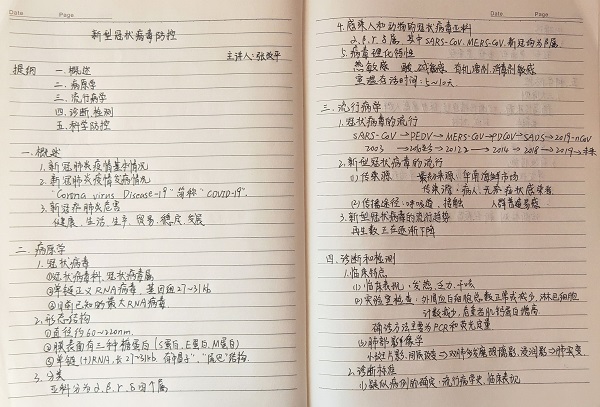 Date Page
新型冠状病毒防控
主讲人:张改平
提纲 一.概述
二.病原学
三.流行病学
四.诊断检测
五.科学防控
一.概述
1.新冠肺炎疫情基本情况
2.新冠肺炎疫情实病情况
"Corona virus Disease-19"简称"COVID-19".
3.新冠肺炎危害
健康、生活、生产、贸易、稳定、发展
二.病原学
1.冠状病毒
①冠状病毒科,冠状病毒属
②单链正义RNA病毒,基因组27~31kb
③目前已知的最大RNA病毒.
2.形态结构
①直径约60~220nm.
②膜表面有三种糖蛋白(S蛋白,E蛋白,M蛋白)
③单链(+)RNA,长27~31kb.有"帽子","尾巴"结构.
3.分类
亚科分为α,β,γ,δ四个属
Date Page
4.感染人和动物的冠状病毒亚科
α,β,γ,δ属,其中SARS-CoV,MERS-CoV,新冠均为β属.
5.病毒理化特性
热敏感 酸碱敏感 有机溶剂,消毒剂敏感
室温存活时间:5~10天.
三.流行病学
1.冠状病毒的流行
SARS-CoV→PEDV→MERS-CoV→PDCoV→SADS→2019-nCoV
2003 →2012→2014→2018→2019→未来
2.新型冠状病毒的流行
(1)传染源 最初来源:华南海鲜市场
传染源:病人、无症状感染者
(2)传播途径:呼吸道、接触 人群普遍易感
3.新型冠状病毒的流行趋势
再生数正在逐渐下降
四.诊断和检测
1.临床特点
(1)临床表现:发热,乏力,干咳
(2)实验室检查:外周血白细胞总数正常或减少,淋巴细胞
计数减少,
确诊方法主要为PCR和荧光定量
(3)肺部影像学
小斑片影,间质改变→双肺多发磨玻璃影,浸润影→肺实变.
2.诊断标准
(1)疑似病例的确定:流行病学史,临床表现